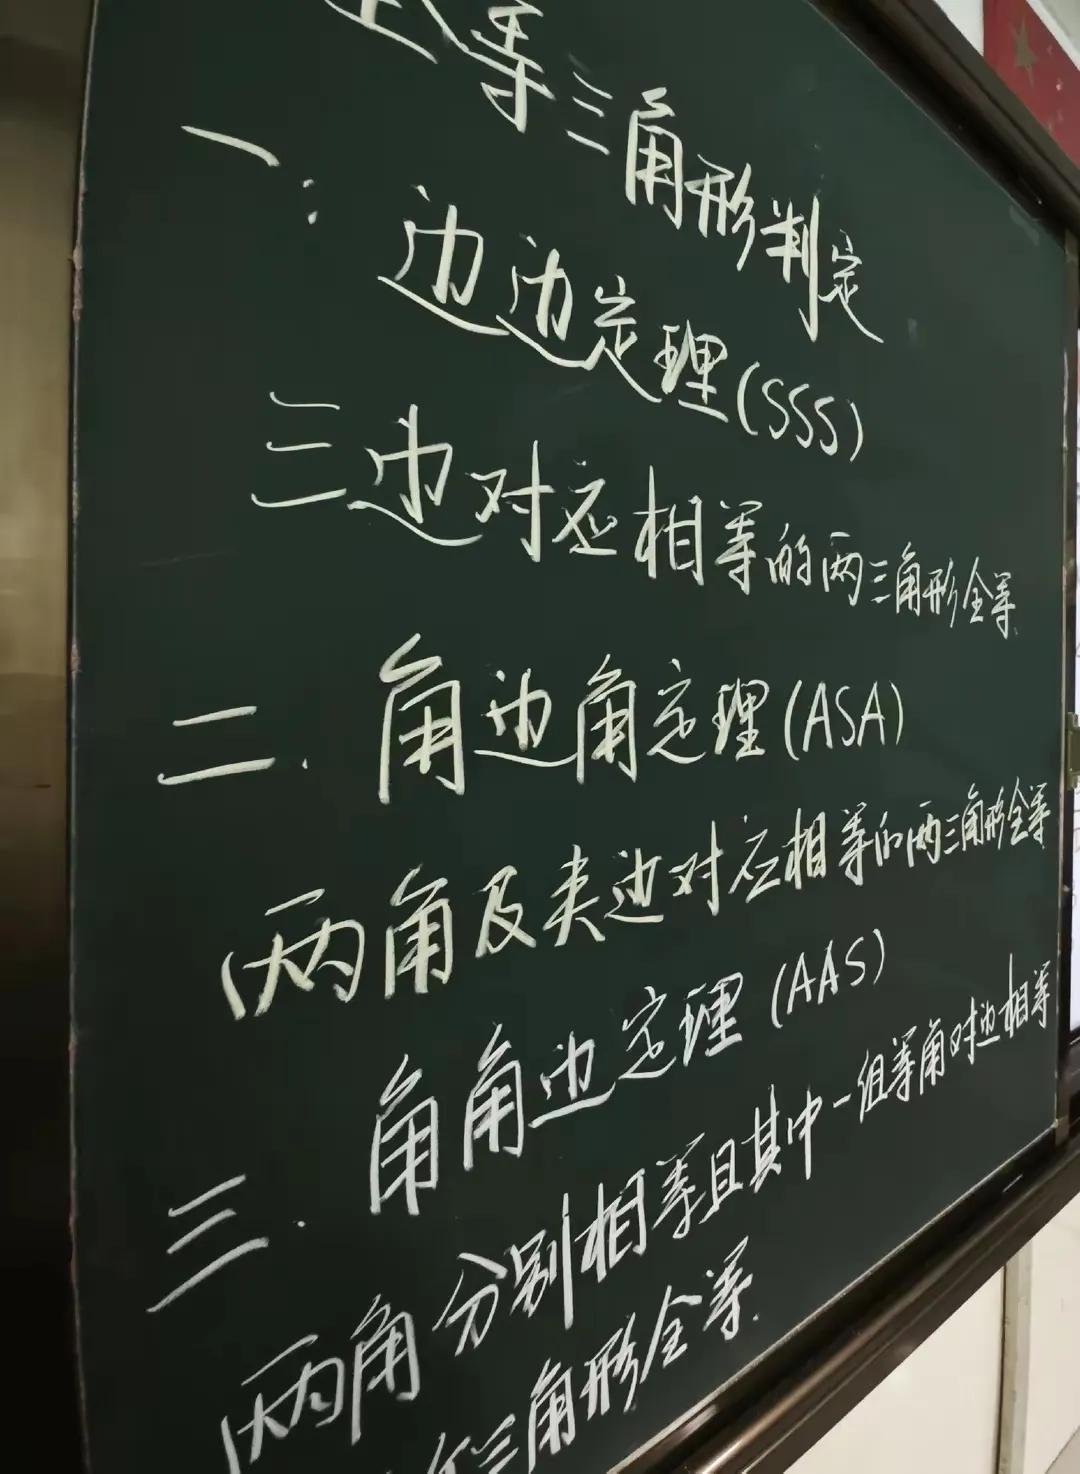 全等三角形判定
一: 边边定理(SSS)
三边对应相等的两三角形全等.
二. 角边角定理(ASA)
两角及夹边对应相等的两三角形全等
三. 角角边定理(AAS)
两角分别相等且其中一组等角对边相等
三角形全等.